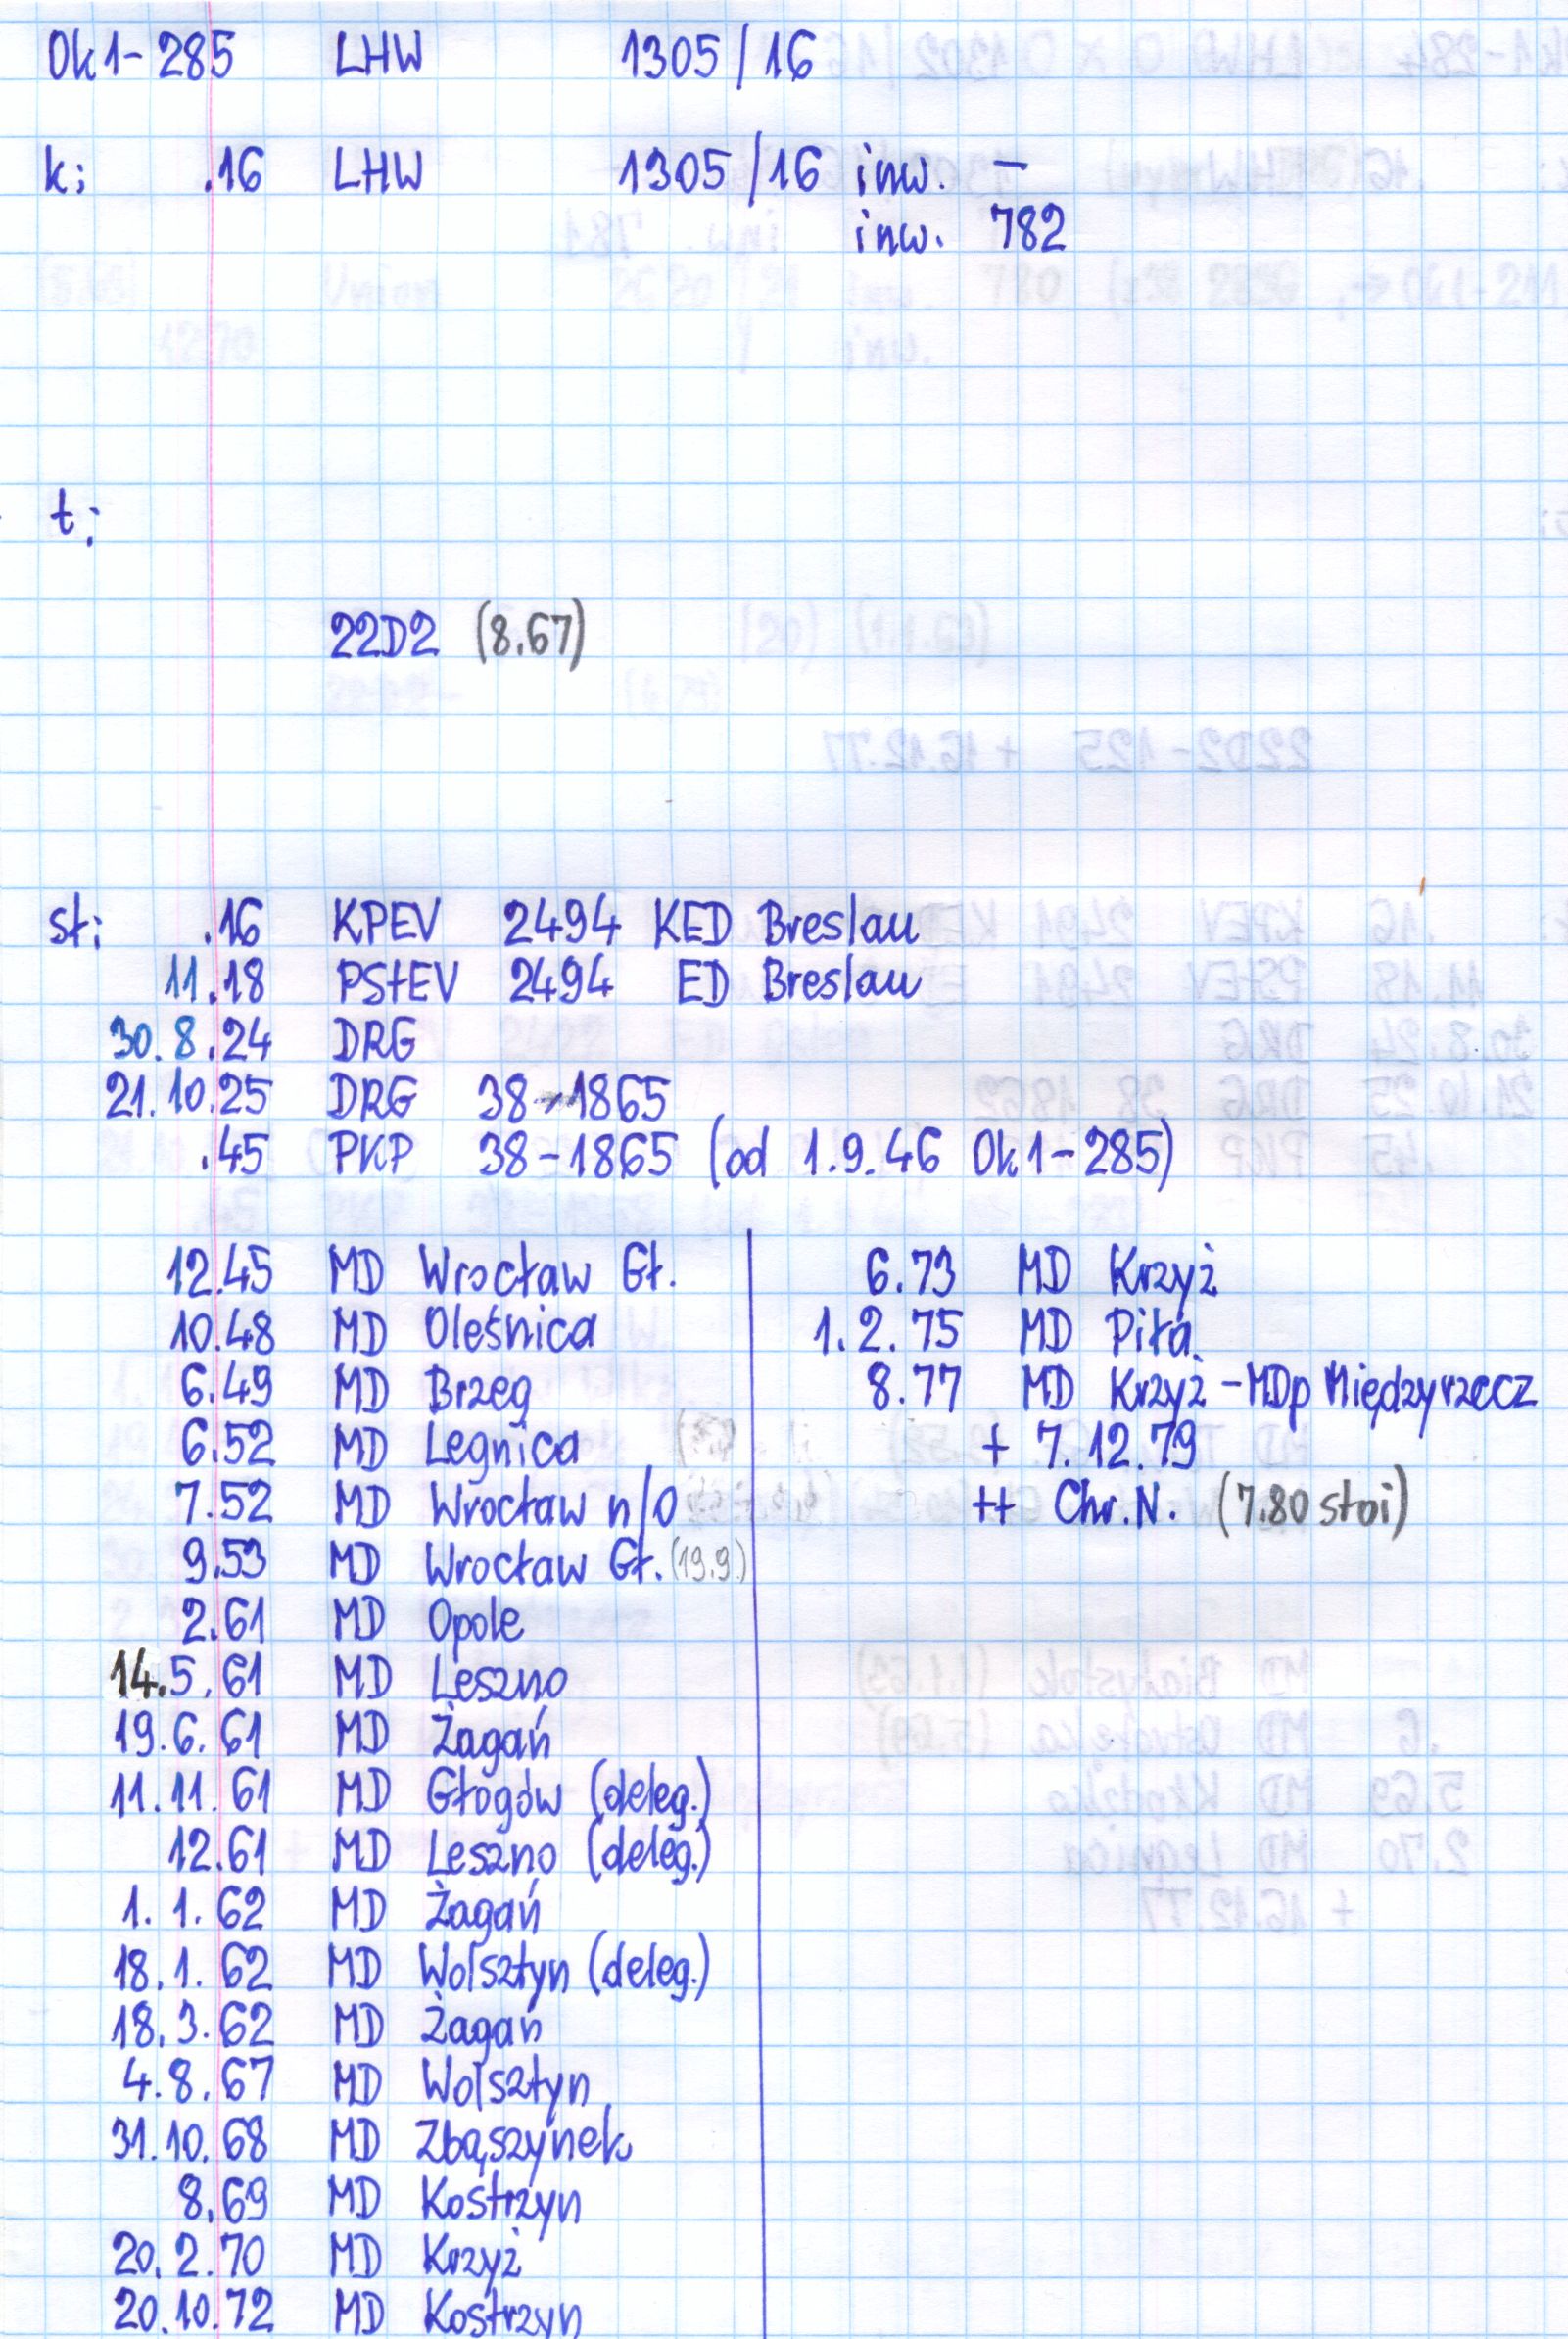 Ok1-285 LHW 1305/16
k: .16 LHW 1305/16 inw. –
inw. 782
t:
22D2 (8.67)
st: .16 KPEV 2494 KED Breslau
11.18 PStEV 2494 ED Breslau
30.8.24 DRG
21.10.25 DRG 38-1865
.45 PKP 38-1865 (od 1.9.46 Ok1-285)
12.45 MD Wrocław Gł.
10.48 MD Oleśnica
6.49 MD Brzeg
6.52 MD Legnica
7.52 MD Wrocław n/O
9.53 MD Wrocław Gł. (19.9.)
2.61 MD Opole
14.5.61 MD Leszno
19.6.61 MD Żagań
11.11.61 MD Głogów (deleg.)
12.61 MD Leszno (deleg.)
1.1.62 MD Żagań
18.1.62 MD Wolsztyn (deleg.)
18.3.62 MD Żagań
4.8.67 MD Wolsztyn
31.10.68 MD Zbąszynek
8.69 MD Kostrzyn
20.2.70 MD Krzyż
20.10.72 MD Kostrzyn
6.73 MD Krzyż
1.2.75 MD Piła
8.77 MD Krzyż - MDp Międzyrzecz
+ 7.12.79
++ Chr.N. (7.80 stoi)